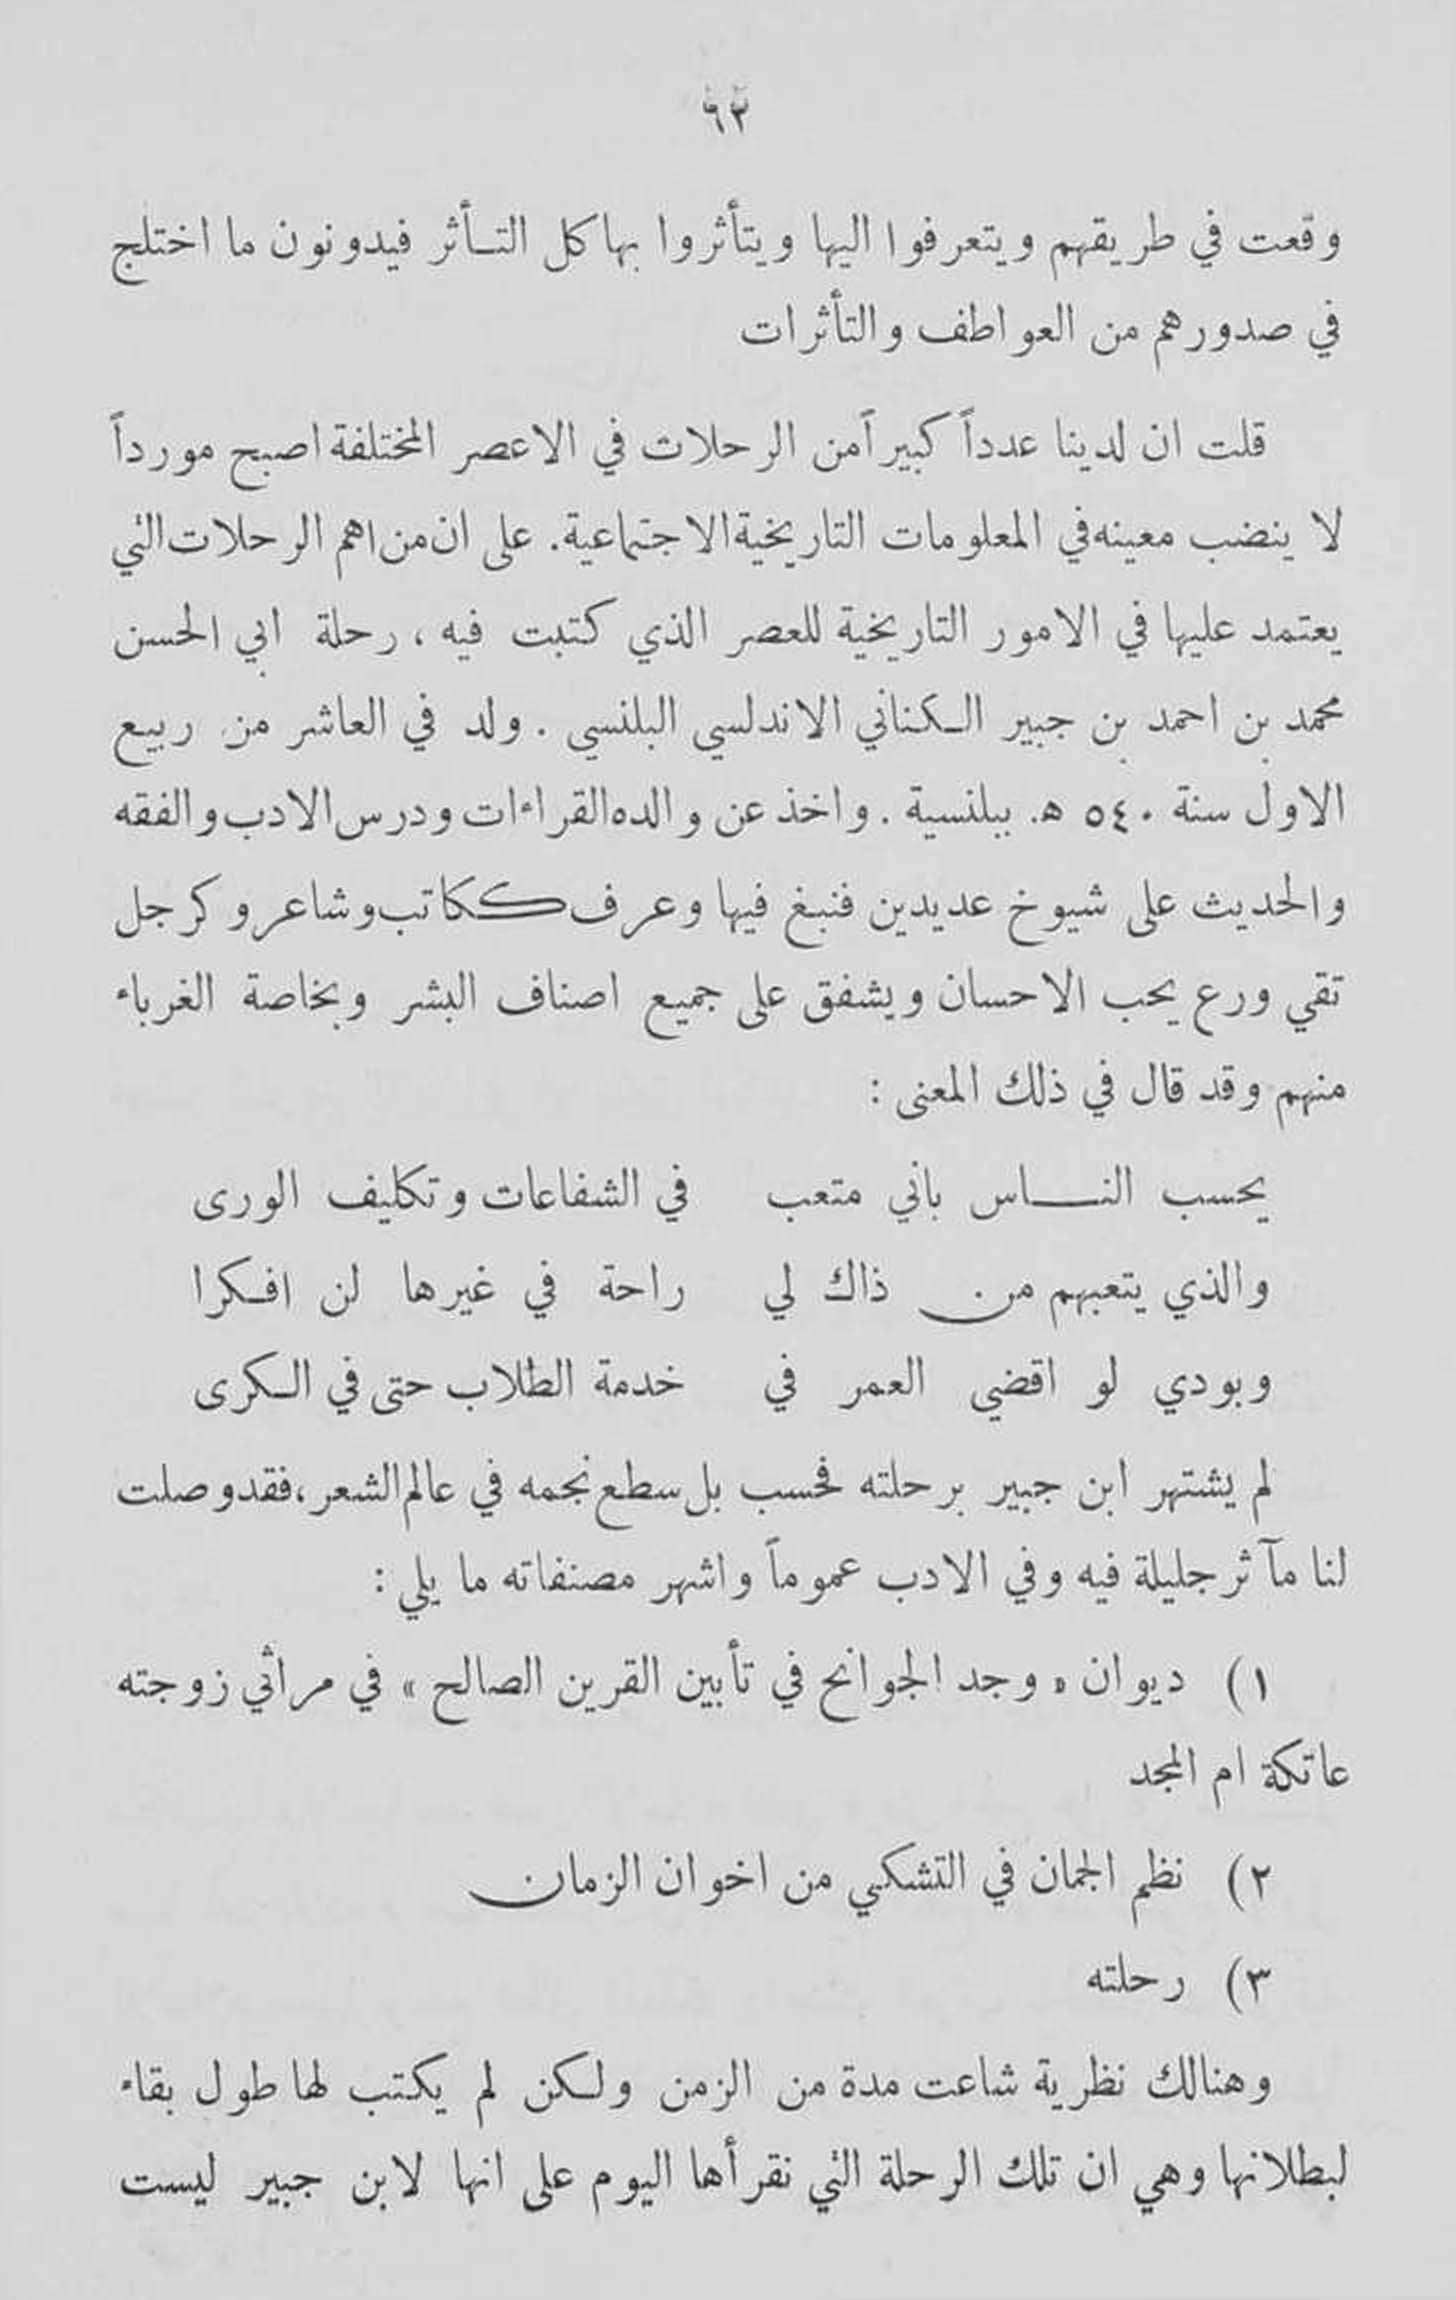 ٦٣
وقعت في طريقهم ويتعرفوا اليها ويتأثروا بها كل التـأثر فيدونون ما اختلج
في صدورهم من العواطف والتأثرات
قلت ان لدينا عدداً كبيراً من الرحلات في الاعصر المختلفة اصبح مورداً
لا ينضب معينه في المعلومات التاريخية الاجتماعية. على ان من اهم الرحلات التي
يعتمد عليها في الامور التاريخية للعصر الذي كتبت فيه ، رحلة ابي الحسن
محمد بن احمد بن جبير الـكناني الاندلسي البلنسي . ولد في العاشر من ربيع
الاول سنة ٥٤٠ هـ. ببلنسية . واخذ عن والده القراءات ودرس الادب والفقه
والحديث على شيوخ عديدين فنبغ فيها وعرف ككاتب وشاعر وكرجل
تقي ورع يحب الاحسان ويشفق على جميع اصناف البشر وبخاصة الغرباء
منهم وقد قال في ذلك المعنى :
يحسب النـــاس باني متعب في الشفاعات وتكليف الورى
والذي يتعبهم من ذاك لي راحة في غيرها لن افـكرا
وبودي لو اقضي العمر في خدمة الطلاب حتى في الـكرى
لم يشتهر ابن جبير برحلته فحسب بل سطع نجمه في عالم الشعر، فقد وصلت
لنا مآثر جليلة فيه وفي الادب عموماً واشهر مصنفاته ما يلي :
١) ديوان « وجد الجوانح في تأبين القرين الصالح » في مراثي زوجته
عاتكة ام المجد
٢) نظم الجمان في التشكي من اخوان الزمان
٣) رحلته
وهنالك نظرية شاعت مدة من الزمن ولـكن لم يكتب لها طول بقاء
لبطلانها وهي ان تلك الرحلة التي نقرأها اليوم على انها لابن جبير ليست